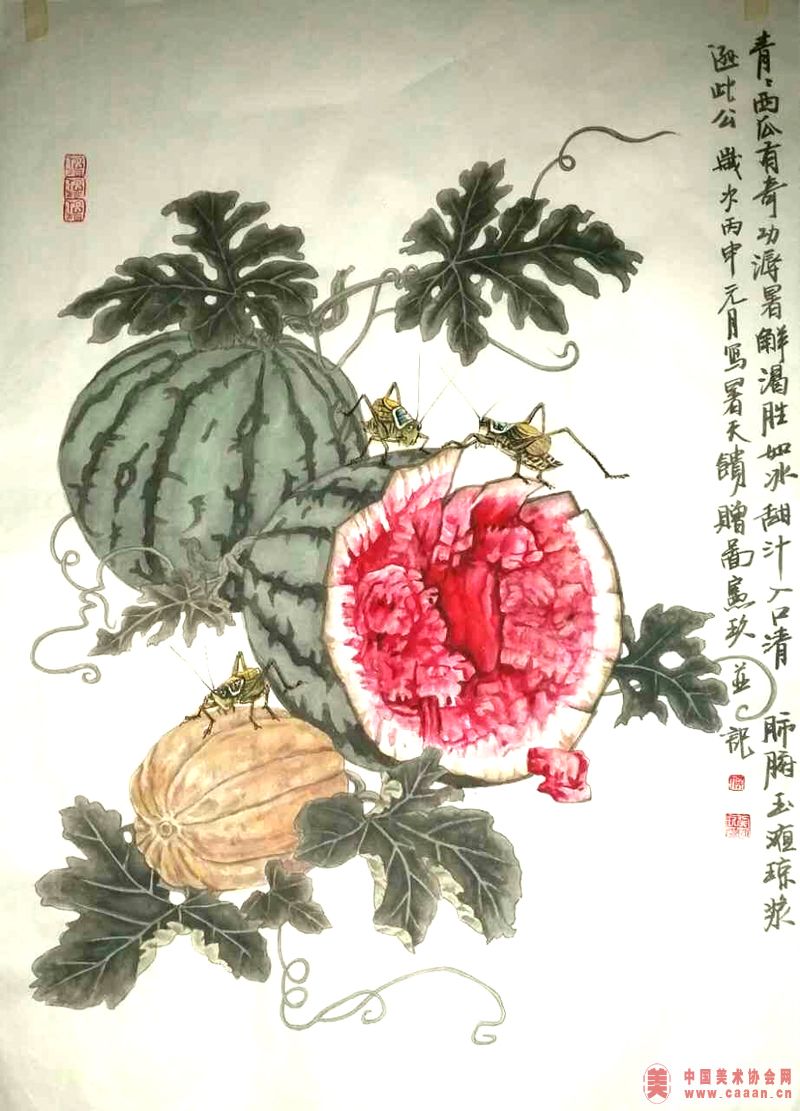 青〻西瓜有奇功溽暑解渴胜如冰甜汁入口清 肺腑玉液琼浆
逊此公 歲次丙申元月写暑天饋贈啚宪玖並記
美 中国美术协会网
www.caaan.cn